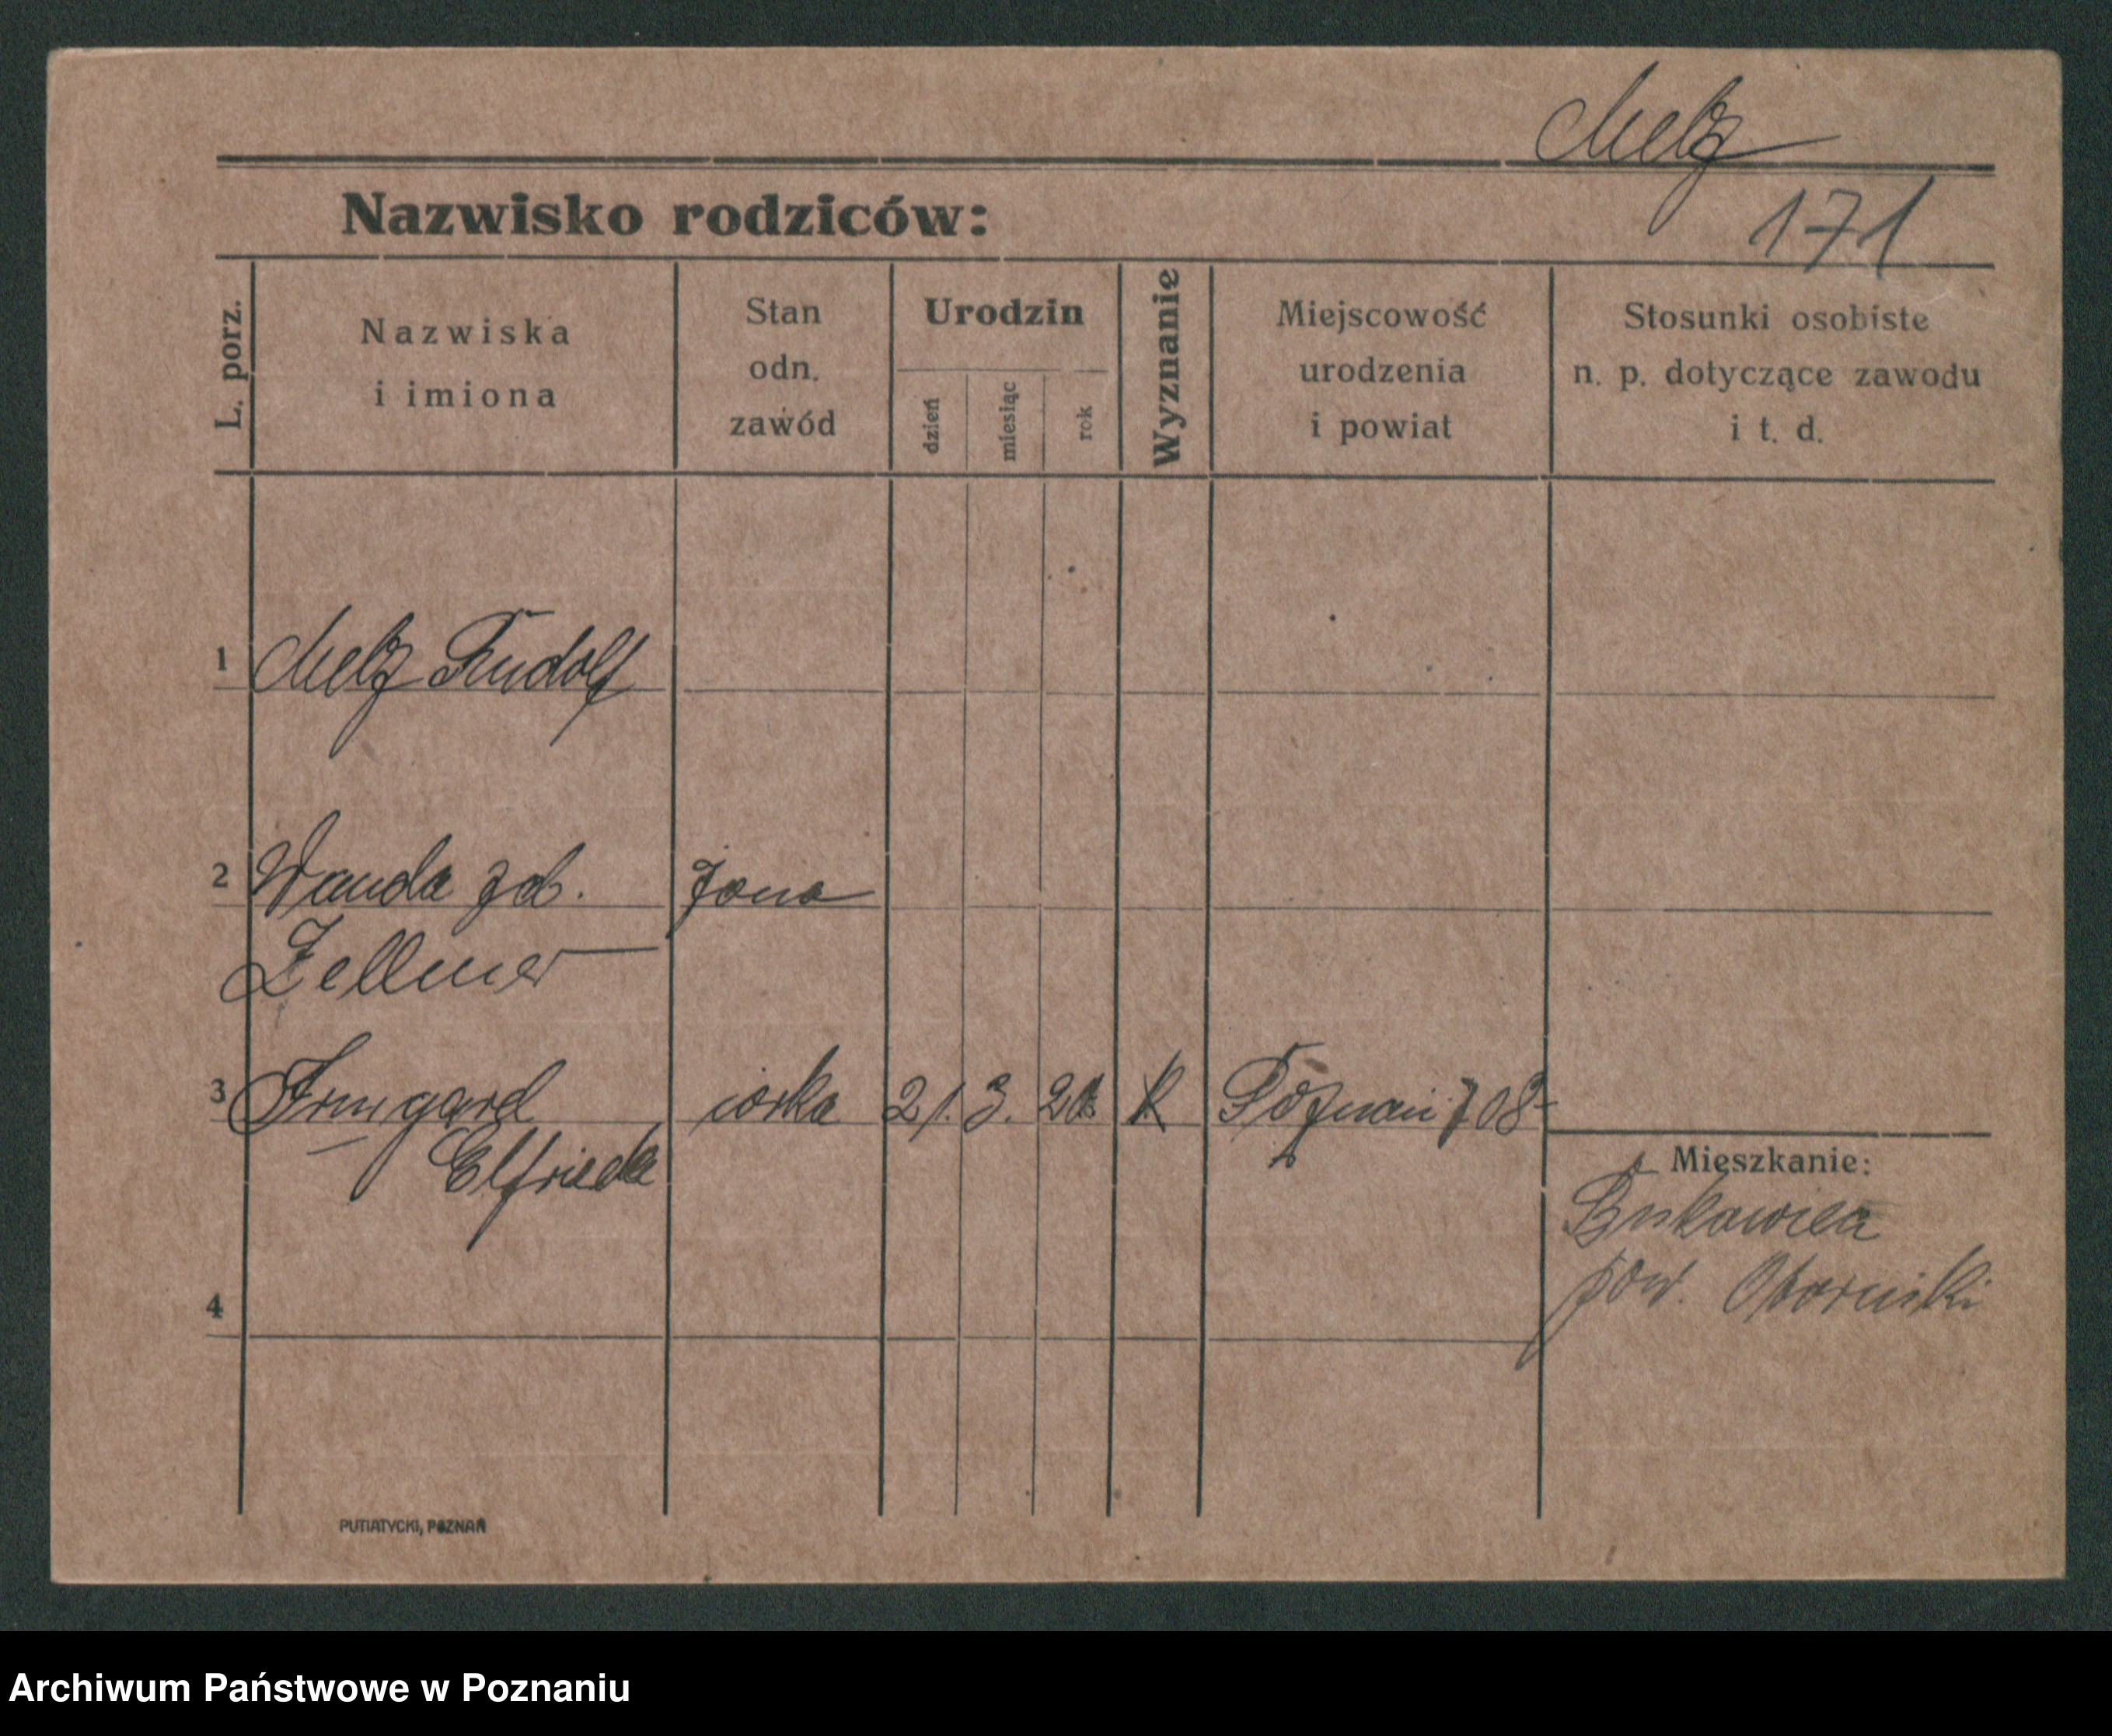 Melz
Nazwisko rodziców:
171
L. porz.
Nazwiska
i imiona
Stan
odn.
zawód
Urodzin
dzień
miesiąc
rok
Wyznanie
Miejscowość
urodzenia
i powiat
Stosunki osobiste
n. p. dotyczące zawodu
i t. d.
1 Melz Rudolf
2 Wanda zd. żona
Zellmer
3 Irmgard córka 21. 3. Poznań 708
Elfrieda
Mieszkanie:
pow. Oborniki
4
PUTIATYCKI, POZNAŃ
Archiwum Państwowe w Poznaniu